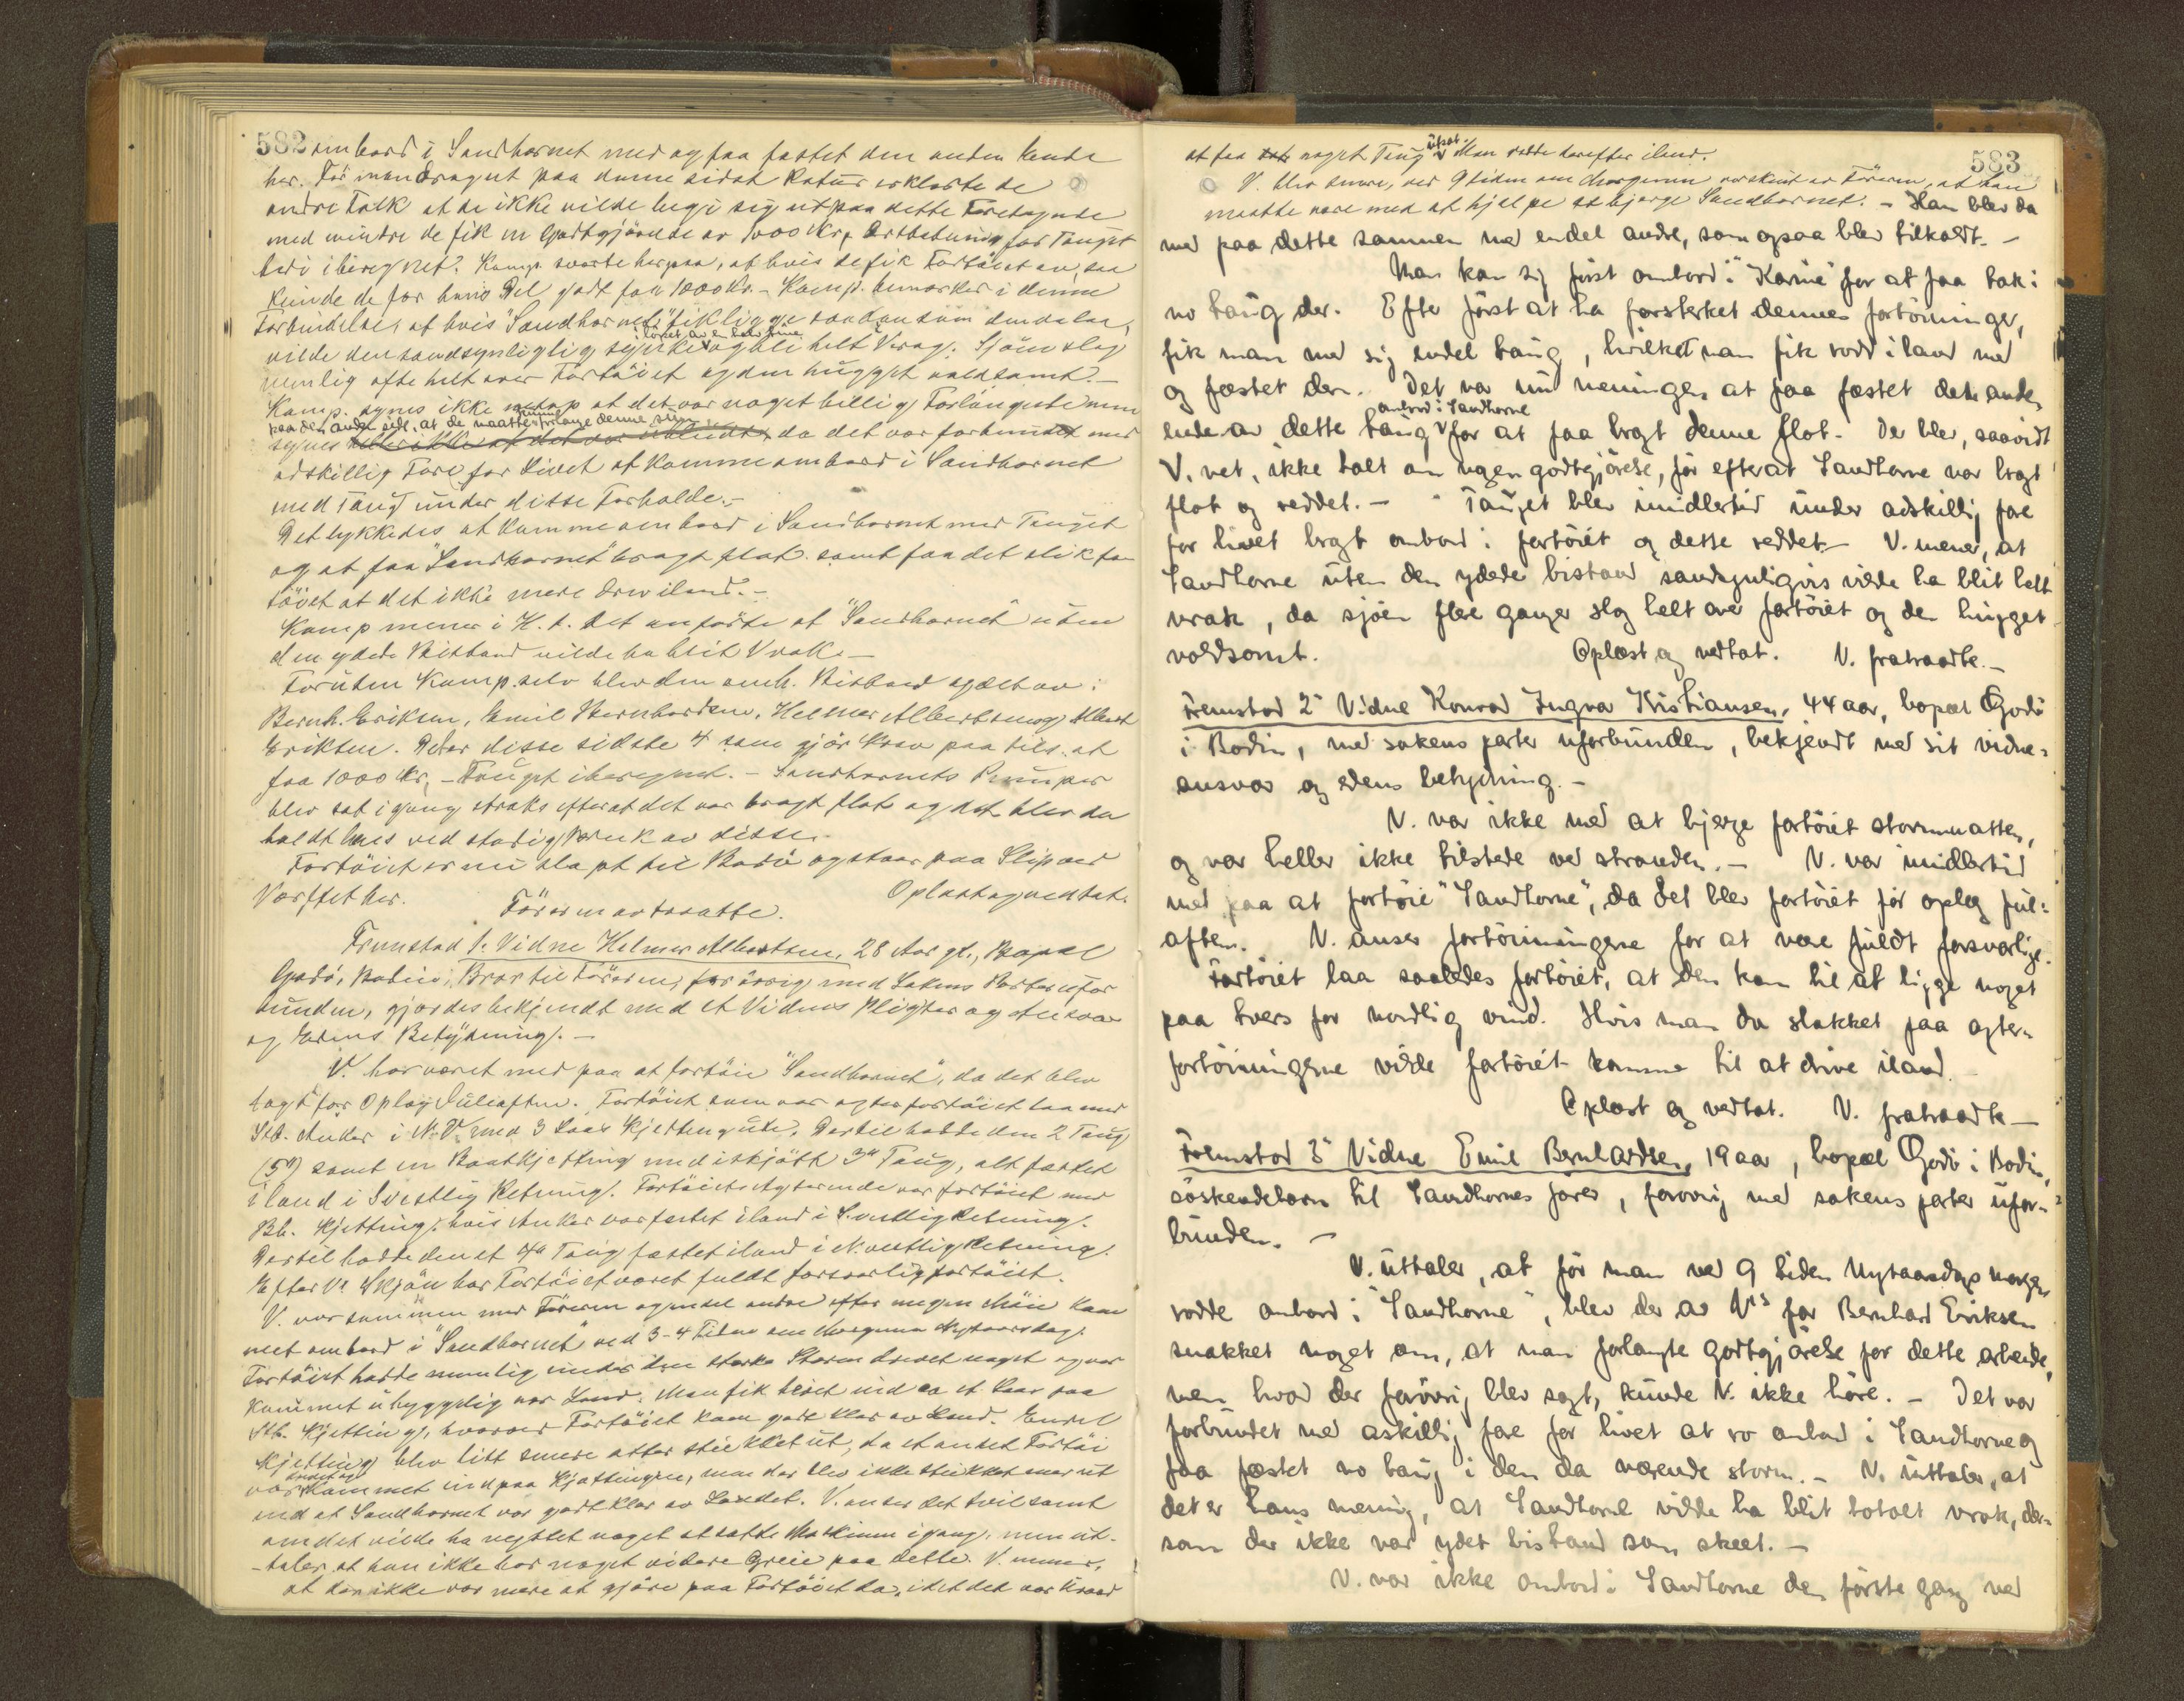 582 ombord i Sandhornet med og faa fæstet den anden Ende
her. Før man drog ut paa denne sidst Katur erklærte de
andre Folk at de ikke vilde begi sig ut paa dette Foretagende
med mindre de fik en Godtgjørelse av 1000 Kr, Erstatning for Tauget
heri iberegnet. Kamp. svarte herpaa, at hvis de fik Fortøiet av, saa
kunde de for hans Del godt faa 1000 Kr. - Kamp. bemærker i denne
Forbindelse, at hvis "Sandhornet" fik ligge saadan som den da laa,
vilde den sandsynligvis synke i løpet av en halv time og bli helt Vrag. Sjøen slog
nemlig ofte helt over Fortøiet og den hugget voldsomt. -
Kamp. synes ikke netop at det var noget billig Forlangende men
paa den anden side, at de maatte kunne forlange denne sum
synes heller ikke at det var ublidt, da det var forbundet med
adskillig Fare for Livet at komme ombord i Sandhornet
med Taug under disse Forholde. -
Det lykkedes at komme ombord i Sandhornet med Tauget
og at faa "Sandhornet" bragt flot samt faa det slik for
tøiet at det ikke mere drev iland. -
Kamp mener i H. t. det anførte at "Sandhornet" uten
den ydede Bistand vilde ha blit Vrak. -
Foruten Kamp. selv blev den omh. Bistand ydet av:
Bernh. Eriksen, Emil Bernhardsen, Helmer Albertsen og Albert
Eriksen. Det er disse sidste 4 som gjør Krav paa tils. at
faa 1000 Kr, - Tauget iberegnet. - Sandhornets Pumper
blev sat i gang straks efter at det var bragt flot og det blev da
holdt læns ved stadig Bruk av disse.
Fortøiet er nu slæpt til Bodø og staar paa Slip ved
Værftet her. Oplæst og vedtat.
Føreren avtraatte.
Fremstod 1. Vidne Helmer Albertsen, 28 Aar gl., Bopæl
Godø, Bodin, Bror til Føreren, for øvrig med Sakens Parter ufor
bunden, gjordes bekjendt med et Vidnes Pligter og Ansvar
og Edens Betydning. -
V. har været med paa at fortøie "Sandhornet", da det blev
lagt for Oplag Juleaften. Fortøiet som var agterfortøiet laa med
Stb. Anker i N.V. med 3 Laas Kjetting ute. Dertil hadde den 2 Taug
(5") samt en Baatkjetting med iskjøtt 3" Taug, alt fæstet
iland i Svestlig Retning. Fortøiets Agterende var fortøiet med
Bb. Kjetting, hvis Anker var fæstet iland i S.vestlig Retning.
Dertil hadde den et 4" Taug fæstet iland i N.vestlig Retning.
Efter V's Skjøn har Fortøiet været fuldt forsvarlig fortøiet.
V. var sammen med Føreren og endel andre efter megen Møie kom
met ombord i "Sandhornet" ved 3-4 Tiden om Morgenen Nytaarsdag.
Fortøiet hadde nemlig under den stærke Storm drevet noget og var
kommet uhyggelig nær Land. Man fik hivet ind ca et Laas paa
Stb. Kjetting, hvorved Fortøiet kom godt klar av Land. Endel
Kjetting blev litt senere atter stukket ut, da et andet Fortøi
var drevet og kommet ind paa Kjettingen, men der blev ikke stukket mer ut
end at Sandhornet var godt klar av Landet. V. anser det tvilsomt
om det vilde ha nyttet noget at sætte Maskinen i gang, men ut-
-taler at han ikke har noget videre Greie paa dette. V. mener,
at der ikke var mere at gjøre paa Fortøiet da, idet det var Uraad
583
at faa noget Taug utsat. Man rodde derefter iland.
V. blev senere, ved 9 tiden om Morgenen varskuet av Føreren, at han
maatte være med at hjælpe at bjerge Sandhornet. - Han blev da
med paa dette sammen med endel andre, som ogsaa blev tilkaldt. -
Man kom sig først ombord i "Karine" for at faa tak i
no taug der. Efter først at ha forsterket dennes fortøininger,
fik man med sig endel taug, hvilket man fik rodd iland med
og fæstet der. Det var nu meningen at faa fæstet den anden
ende av dette taug ombord i Sandhorne for at faa bragt denne flot. Der blev, saavidt
V. vet, ikke talt om nogen godtgjørelse, før efterat Sandhorne var bragt
flot og reddet. - Tauget blev imidlertid under adskillig fare
for livet bragt ombord i fartøiet og dette reddet. - V. mener, at
Sandhorne uten den ydede bistand sandsynligvis vilde ha blit helt
vrak, da sjøen flere ganger slog helt over fartøiet og den hugget
voldsomt. Oplæst og vedtat. V. fratraadte. -
Fremstod 2' Vidne Konrad Ingvar Kristiansen, 44 aar, bopæl Godø
i Bodin, med sakens parter uforbunden, bekjendt med sit vidne-
ansvar og edens betydning. -
V. var ikke med at bjerge fartøiet stormnatten,
og var heller ikke tilstede ved stranden. - V. var imidlertid
med paa at fortøie "Sandhorne", da det blev fortøiet før oplag jul-
aften. V. anser fortøiningene for at være fuldt forsvarlige.
Fartøiet laa saaledes fortøiet, at den kom til at ligge noget
paa tvers for nordlig vind. Hvis man da slakket paa agter-
fortøiningene vilde fartøiet komme til at drive iland.
Oplæst og vedtat. V. fratraadte -
Fremstod 3' Vidne Emil Bernhardsen, 19 aar, bopæl Godø i Bodin,
søskendebarn til Sandhornes fører, forøvrig med sakens parter ufor-
bunden. -
V. uttaler, at før man ved 9 tiden Nytaarsdags morgen
rodde ombord i "Sandhorne", blev der av V's far Bernhard Eriksen
snakket noget om, at man forlangte godtgjørelse for dette arbeide,
men hvad der forøvrig blev sagt, kunde V. ikke høre. - Det var
forbundet med askillig fare for livet at ro ombord i Sandhorne og
faa fæstet no taug i den da værende storm. - V. uttaler, at
det er hans mening, at Sandhorne vilde ha blit totalt vrak, der-
som der ikke var ydet bistand som skeet. -
V. var ikke ombord i Sandhorne den første gang ved